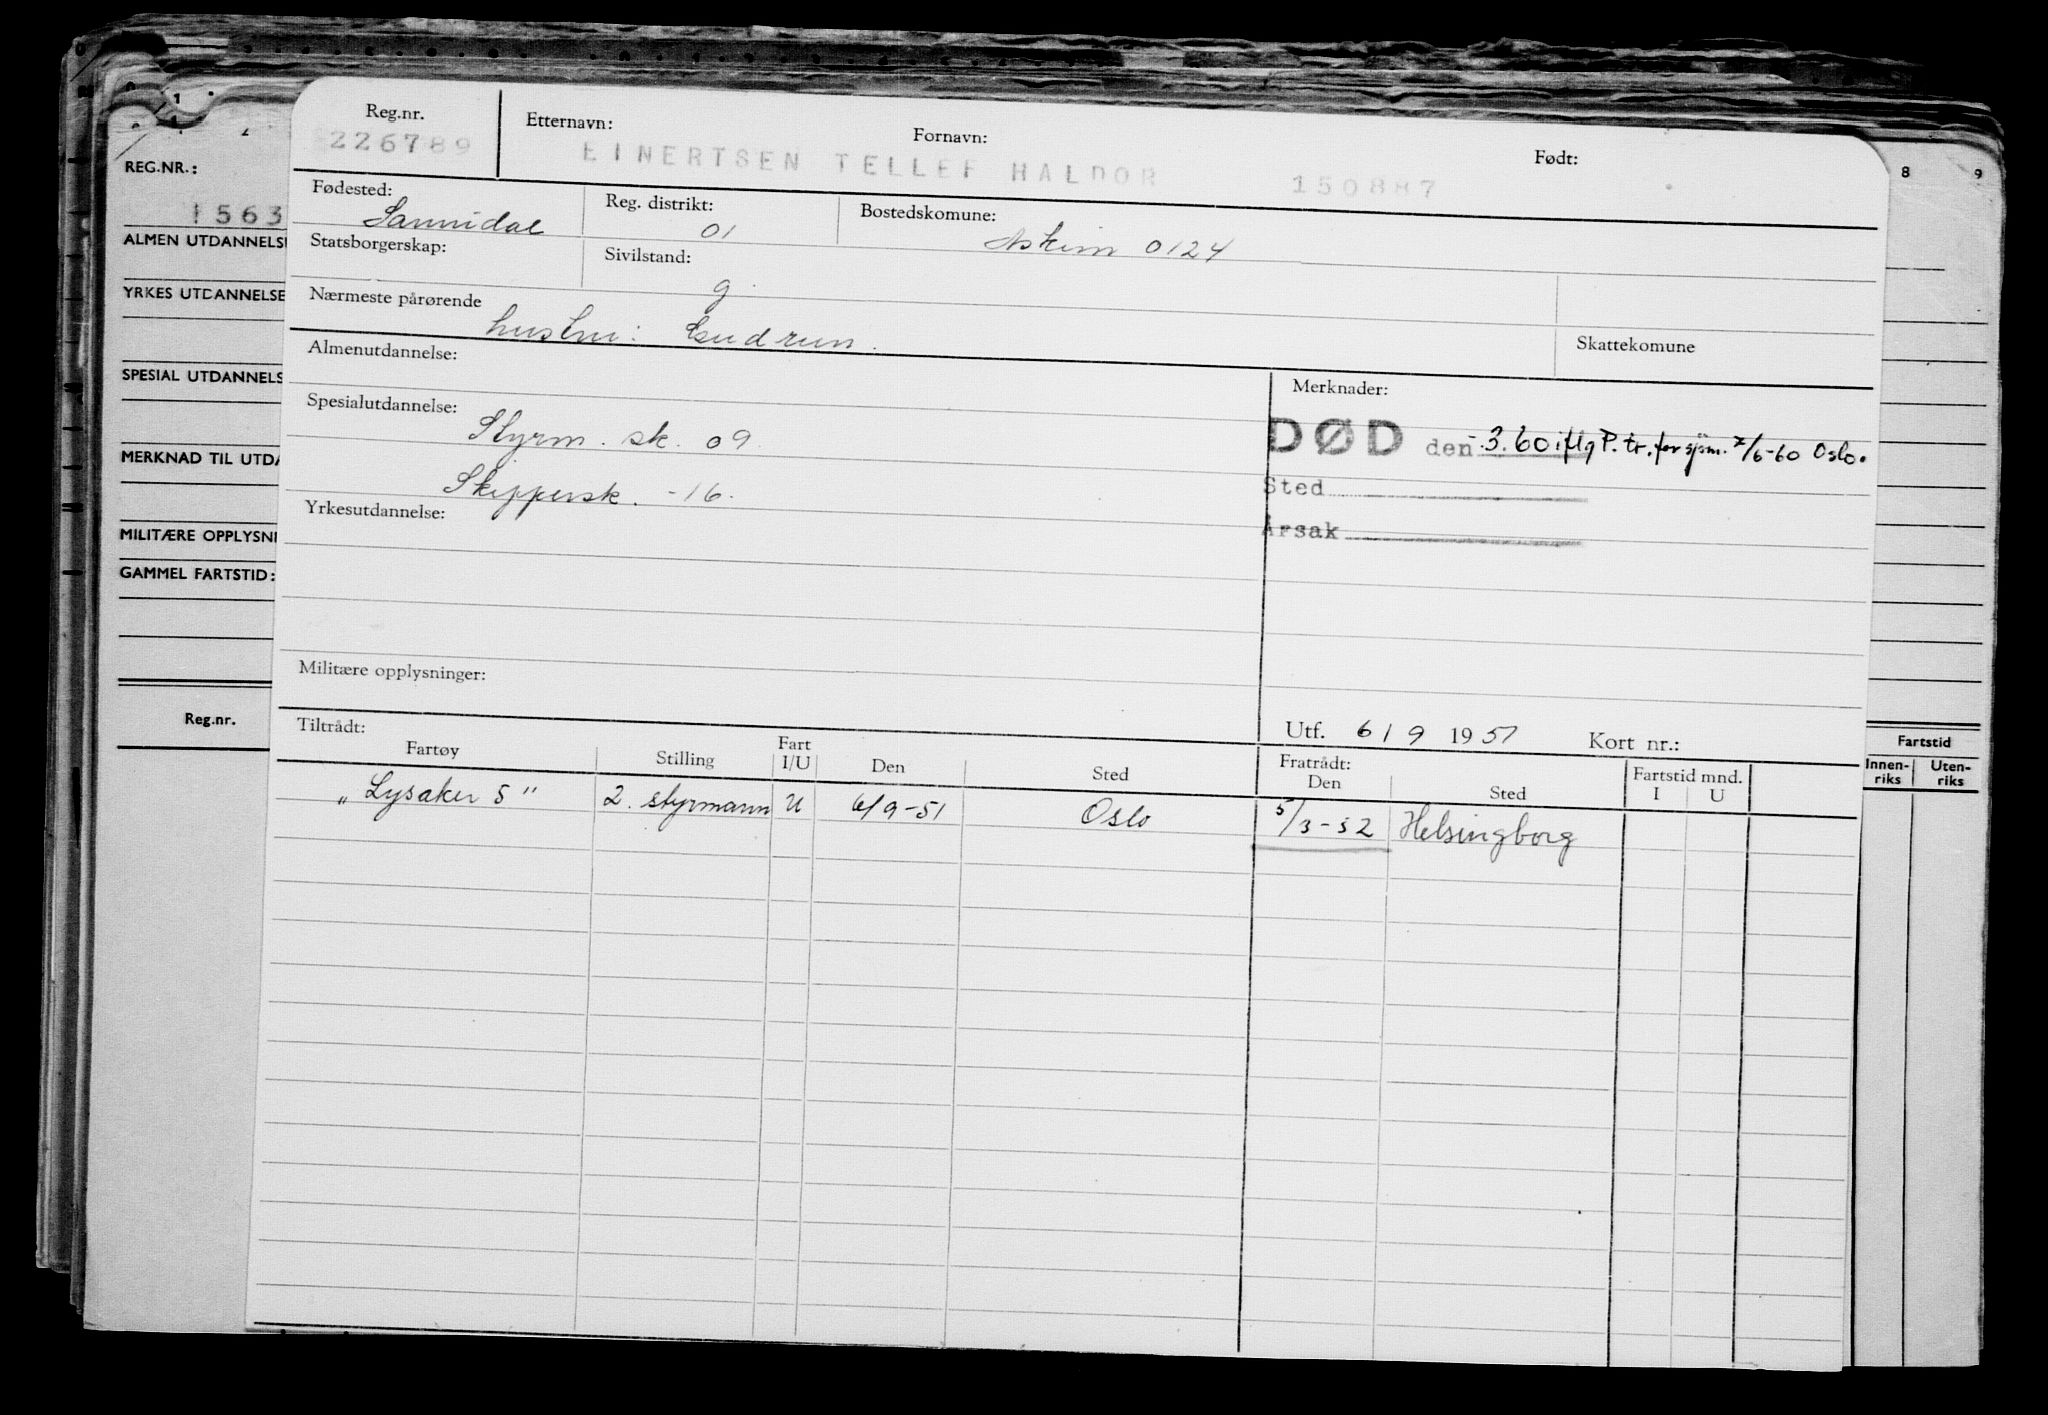 Reg.nr. Etternavn: Fornavn: Født:
226789 EINERTSEN TELLEF HALDOR 150887
Fødested: Reg. distrikt: Bostedskomune:
Sannidal 01 Askim 0124
Statsborgerskap: Sivilstand:
g.
Nærmeste pårørende
hustru: Gudrun.
Skattekomune
Almenutdannelse:
Merknader:
Spesialutdannelse:
Styrm. sk. 09.
DØD den -.3.60 iflg P. tr. for sjøm. 7/6-60 Oslo.
Skippersk. -16.
Sted
Yrkesutdannelse:
Årsak
Militære opplysninger:
Utf. 6/9 1951 Kort nr.:
Tiltrådt: Fratrådt:
Fartøy Stilling Fart I/U Den Sted Den Sted Fartstid mnd. I U
"Lysaker 5" 2. styrmann U 6/9-51 Oslo 5/3-52 Helsingborg
REG.NR.:
1563
ALMEN UTDANNELS
YRKES UTDANNELSE
SPESIAL UTDANNELS
MERKNAD TIL UTDA
MILITÆRE OPPLYSNI
GAMMEL FARTSTID:
Reg.nr.
8 9
Fartstid
Innen-riks Uten-riks